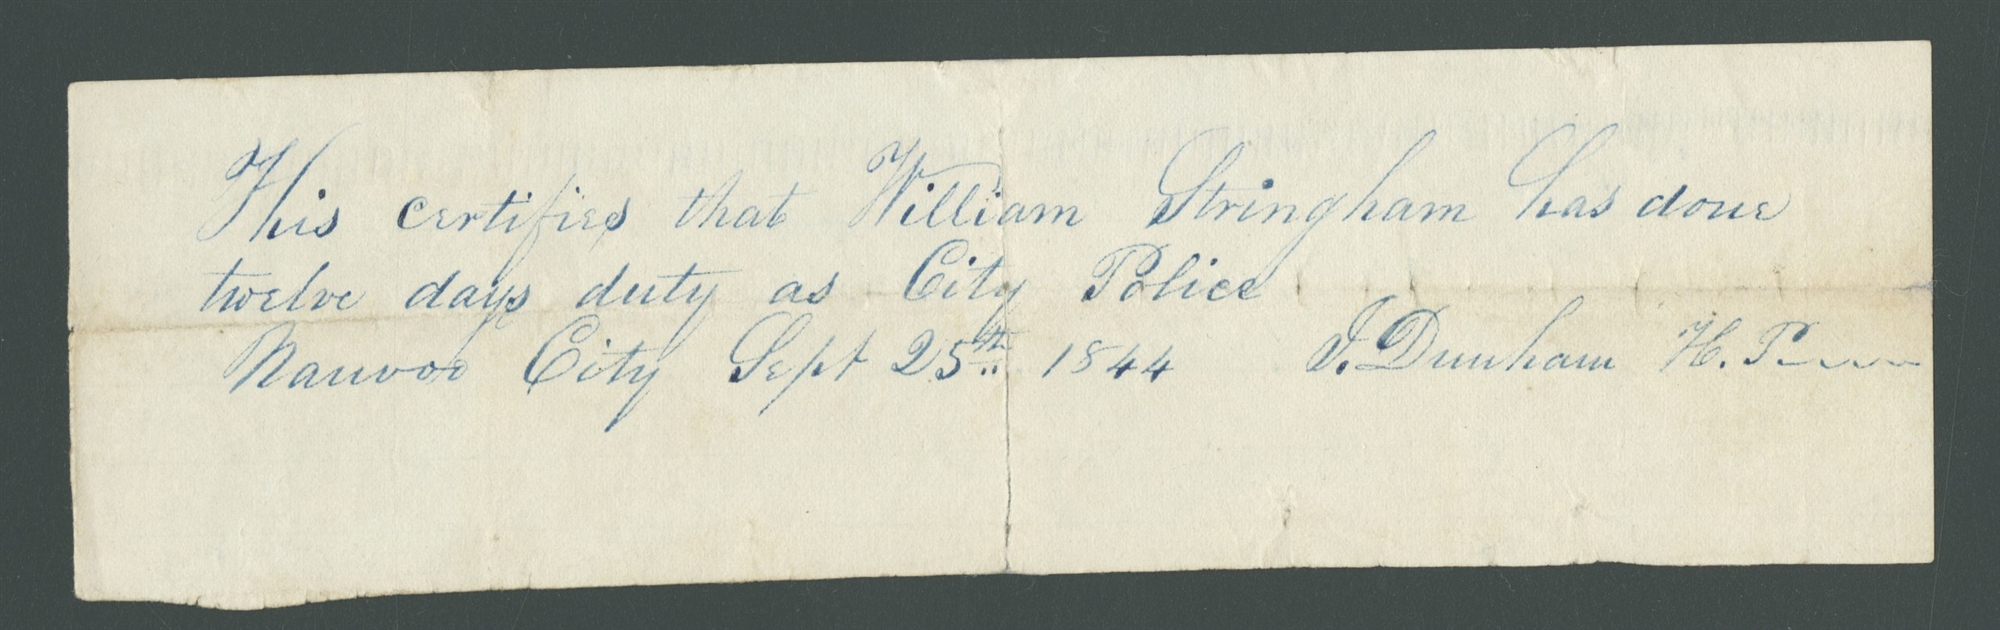 This certifies that William Stringham has done
twelve days duty as City Police
Nauvoo City Sept 25th 1844 J. Dunham H. P